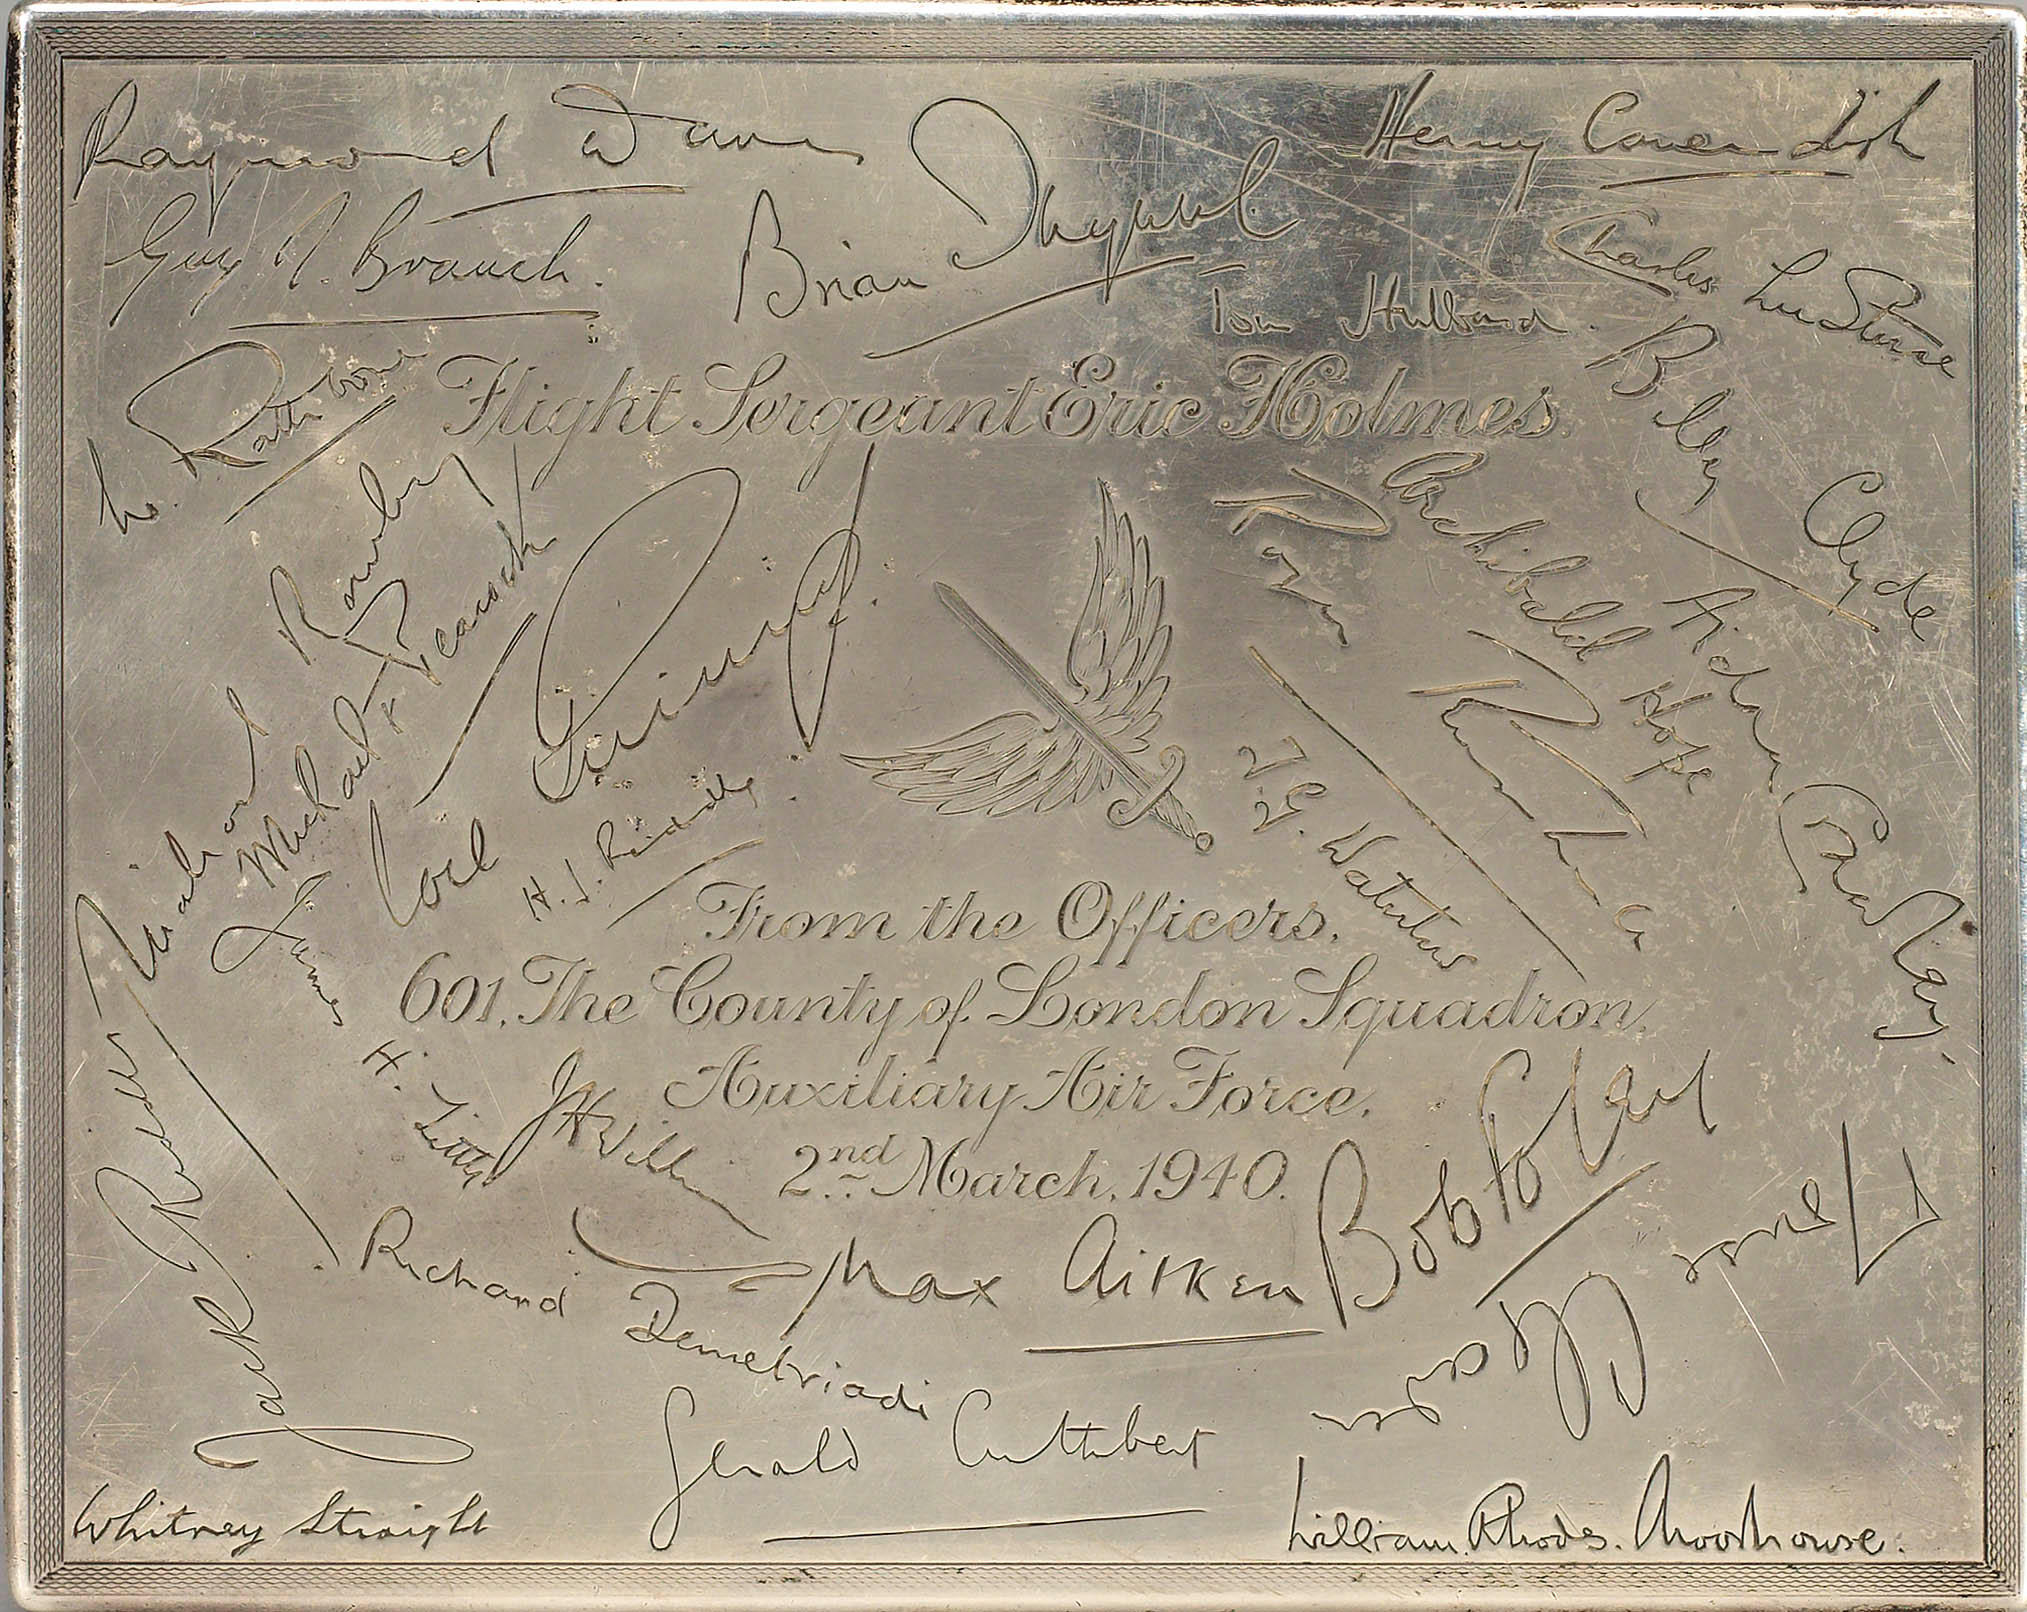 Raymond Davis
Henry Cavendish
Guy R. Branch.
Brian Thynne
Charles Lee Steere
Tom Hubbard.
H. Rathbone
Flight Sergeant Eric Holmes.
Billy Clyde
Michael Rowley
Michael F Peacock
Carl
Roger
Archibald Hope
Aidan Crawley.
H. J. Riddle
T. G. Waterlow
From the Officers.
601. The County of London Squadron.
Auxiliary Air Force.
2nd March, 1940.
James
H. Little
Jack Riddle
Max Aitken
Bob
Roger
Richard Demetriadi
Gerald Cuthbert
Whitney Straight
William Rhodes. Moorhouse.